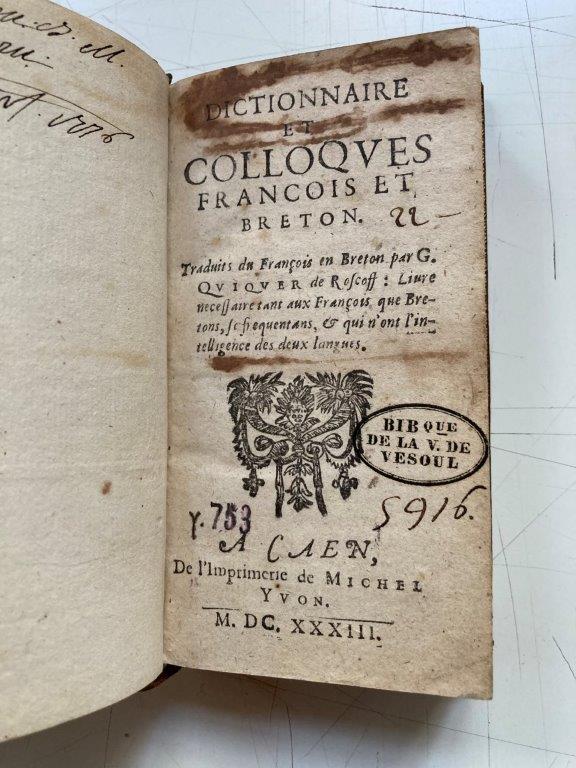 DICTIONNAIRE
ET
COLLOQVES
FRANCOIS ET
BRETON.
22 -
Traduits du François en Breton par G.
QVIQVER de Roscoff : Liure
necessaire tant aux François que Bre-
tons, se frequentans, & qui n'ont l'in-
telligence des deux langues.
BIBQUE
DE LA V. DE
VESOUL
Y. 753
5916.
A CAEN,
De l'Imprimerie de MICHEL
YVON.
M. DC. XXXIII.